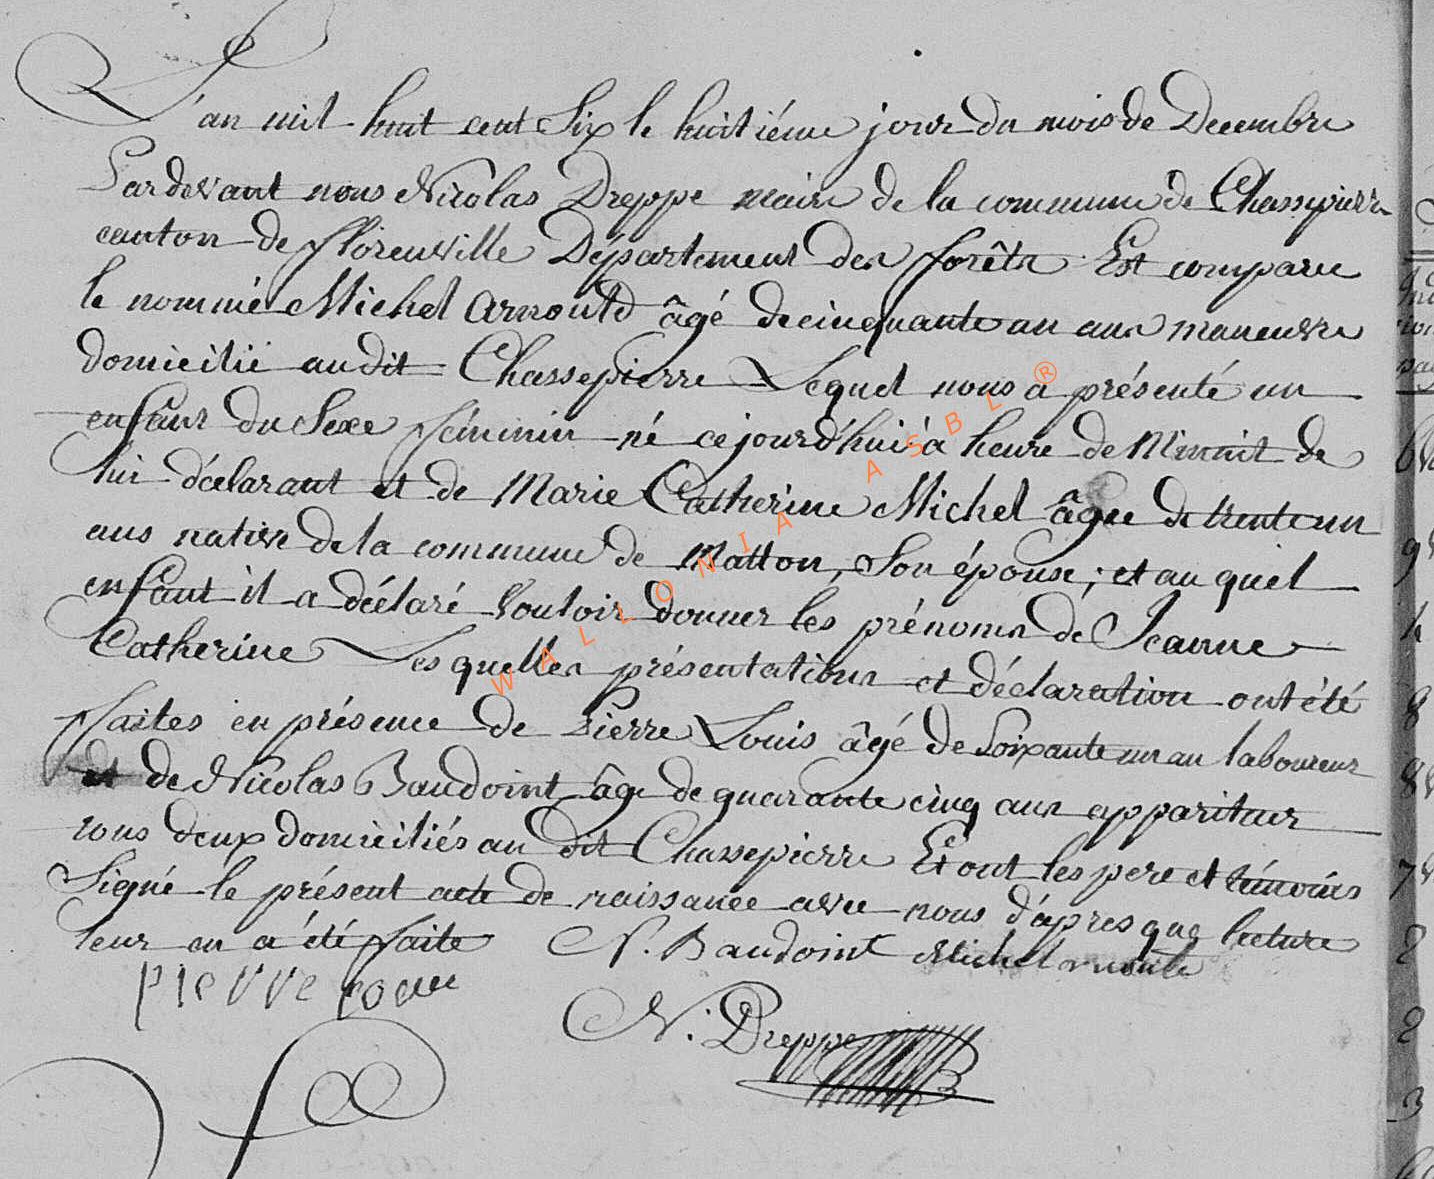 L'an mil huit cent Six le huitiéme jour du mois de Decembre
Pardevant nous Nicolas Dreppe maire de la commune de Chassepierre
canton de florenville Département des forêts Est comparu
le nommé Michel Arnould âgé de cinquante un ans maneuvre
domicilié audit Chassepierre Lequel nous a présenté un
enfant du Sexe féminin né cejourd'hui à heure de Minuit de
lui déclarant et de Marie Catherine Michel âgée de trente un
ans native de la commune de Matton, Son épouse; et au quel
enfant il a déclaré Vouloir donner les prénoms de Jeanne
Catherine Les quelles présentations et déclaration ont été
faites en présence de Pierre Louis âgé de Soixante un an laboureur
et de Nicolas Baudoint âge de quarante cinq ans appariteur
tous deux domiciliés au dit Chassepierre Et ont les pere et témoins
Signé le présent acte de naissance avec nous d'apres que lecture
leur en a été faite N. Baudoint Michel arnould
pierre
N. Dreppe
WALLONIA ASBL ®